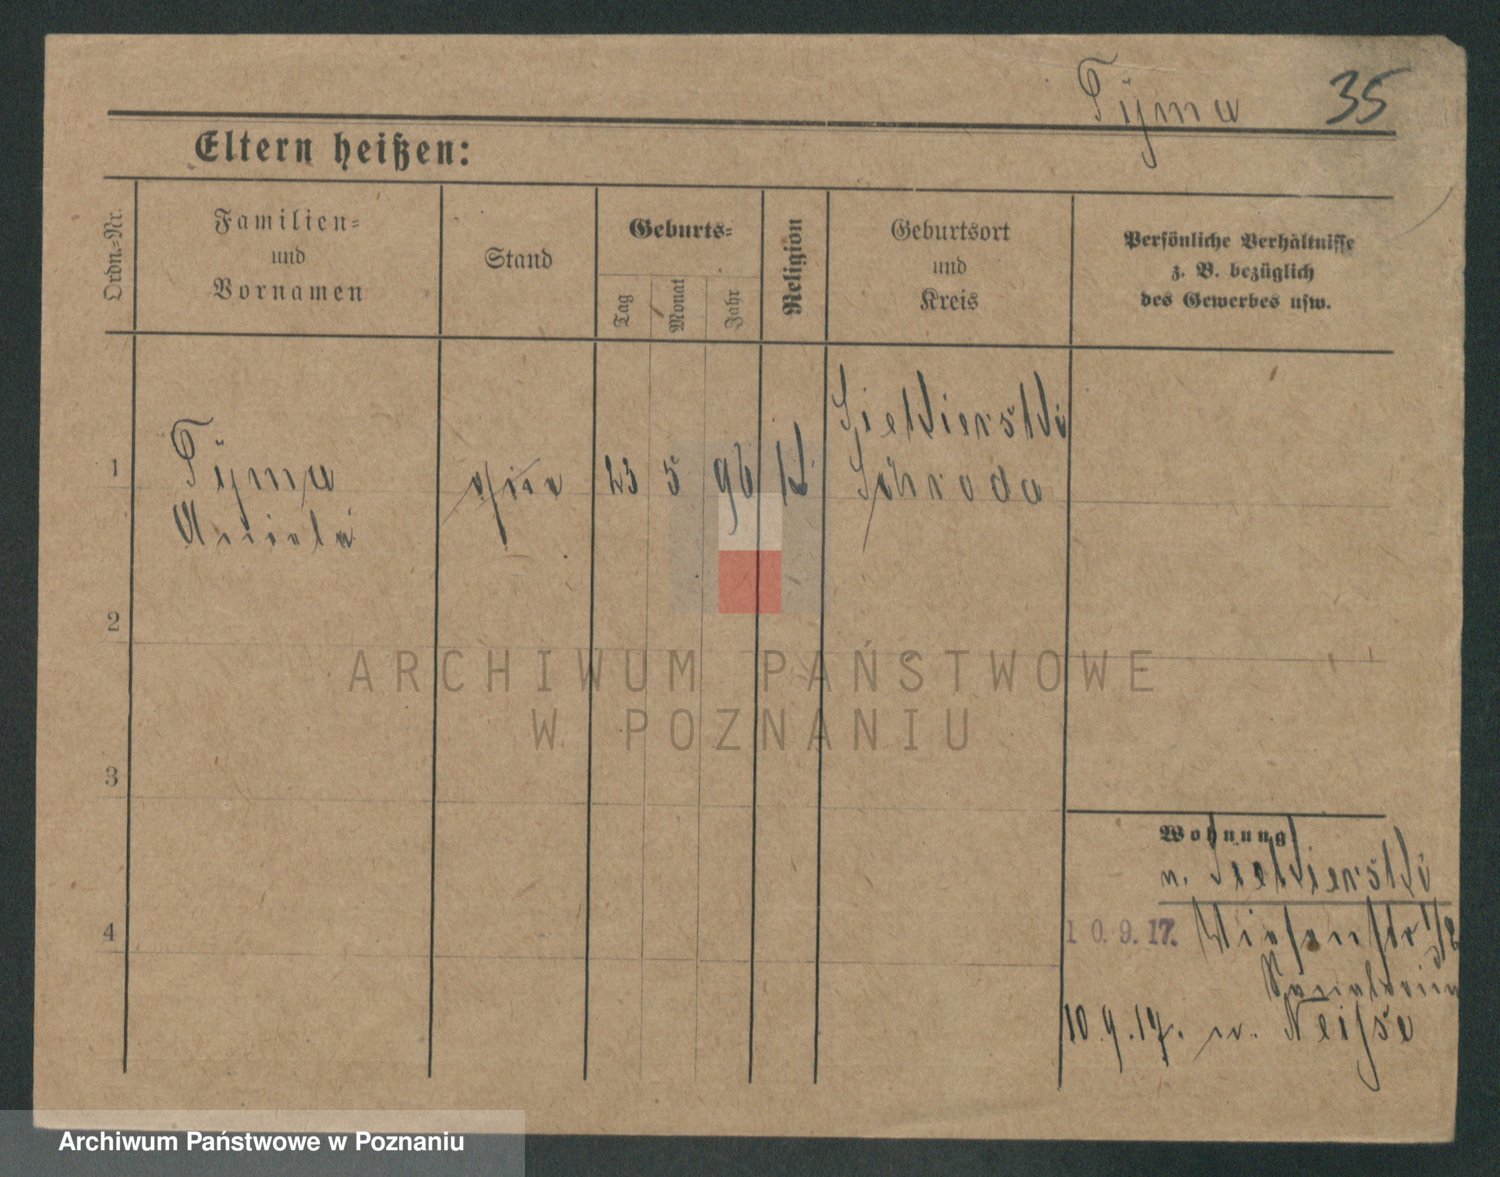 Tÿma 35
Eltern heißen:
Ordn.-Nr.
Familien-
und
Vornamen
Stand
Geburts-
Tag
Monat
Jahr
Religion
Geburtsort
und
Kreis
Persönliche Verhältnisse
z. B. bezüglich
des Gewerbes usw.
1
Tÿma
23 5 96 k.
Siekierski
Schroda
2
3
4
Wohnung:
n. Siekierski
10. 9. 17. Wiesenstr
10.9.17. n. Neisse
ARCHIWUM PAŃSTWOWE
W POZNANIU
Archiwum Państwowe w Poznaniu